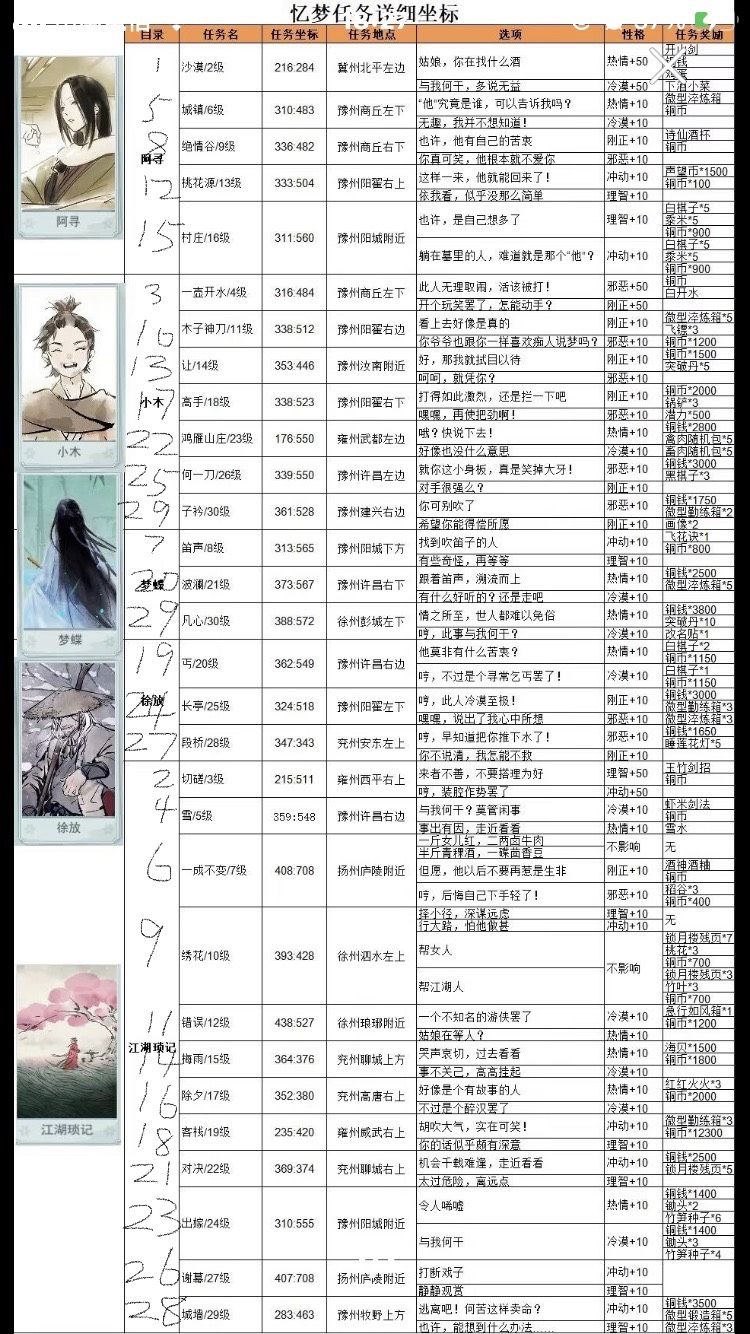 忆梦任务详细坐标
目录 任务名 任务坐标 任务地点 选项 性格 任务奖励
阿寻
1 沙漠/2级 216:284 冀州北平左边
姑娘，你在找什么酒 热情+50
与我何干，多说无益 冷漠+50 下酒小菜
5 城镇/6级 310:483 豫州商丘左下
“他”究竟是谁，可以告诉我吗？ 热情+10 微型淬炼箱
铜币
无趣，我并不想知道！ 冷漠+10
8 绝情谷/9级 336:482 豫州商丘右下
也许，他有自己的苦衷 刚正+10 诗仙酒杯
铜币
你真可笑，他根本就不爱你 邪恶+10
阿寻
12 桃花源/13级 333:504 豫州阳翟右上
这样一来，他就能回来了！ 冲动+10 声望币*1500
铜币*100
依我看，似乎没那么简单 理智+10
15 村庄/16级 311:560 豫州阳城附近
也许，是自己想多了 理智+10 白棋子*5
黍米*5
铜币*900
躺在墓里的人，难道就是那个“他”？ 冲动+10 白棋子*5
黍米*5
铜币*900
小木
3 一壶开水/4级 316:484 豫州商丘左下
此人无理取闹，活该被打！ 邪恶+50 铜币
白开水
开个玩笑罢了，怎能动手？ 刚正+50
10 木子神刀/11级 338:512 豫州阳翟右边
看上去好像是真的 刚正+10 微型淬炼箱*5
飞镖*3
你爷爷也跟你一样喜欢痴人说梦吗？ 邪恶+10 铜币*1200
13 让/14级 353:446 豫州汝南附近
好，那我就拭目以待 刚正+10 铜币*1500
突破丹*5
呵呵，就凭你？ 邪恶+10
小木
17 高手/18级 338:523 豫州阳翟右下
打得如此激烈，还是拦一下吧 刚正+10 铜币*2000
锅铲*3
嘿嘿，再使把劲啊！ 邪恶+10 潜力*500
22 鸿雁山庄/23级 176:550 雍州武都左边
哦？快说下去！ 热情+10 铜钱*2800
禽肉随机包*5
好像也没什么意思 冷漠+10 畜肉随机包*5
25 何一刀/26级 339:550 豫州许昌左边
就你这小身板，真是笑掉大牙！ 邪恶+10 铜钱*3000
黑棋子*3
对手很强么？ 刚正+10
29 子衿/30级 361:528 豫州建兴右边
你可别吹了 邪恶+10 铜钱*1750
微型勤练箱*2
希望你能得偿所愿 刚正+10 画像*2
梦蝶
7 笛声/8级 313:565 豫州阳城下方
找到吹笛子的人 冲动+10 飞花诀*1
铜币*800
有些奇怪，再等等 理智+10
梦蝶
20 波澜/21级 373:567 豫州许昌右下
跟着笛声，溯流而上 热情+10 铜钱*2500
微型淬炼箱*5
有什么好听的？还是走吧 冷漠+10
29 凡心/30级 388:572 徐州彭城左下
情之所至，世人都难以免俗 热情+10 铜钱*3800
突破丹*10
哼，此事与我何干？ 冷漠+10 改名贴*1
徐放
19 丐/20级 362:549 豫州许昌右边
他莫非有什么苦衷？ 热情+10 白棋子*2
铜币*1150
哼，不过是个寻常乞丐罢了！ 冷漠+10 白棋子*1
铜币*1150
徐放
24 长亭/25级 324:518 豫州阳翟左下
哼，此人冷漠至极！ 刚正+10 铜钱*3000
微型勤练箱*3
嘿嘿，说出了我心中所想 邪恶+10 微型淬炼箱*3
27 段桥/28级 347:343 兖州安东左上
哼，早知道把你推下水了！ 邪恶+10 铜钱*1650
睡莲花灯*5
你不说清，我怎能不救 刚正+10
2 切磋/3级 215:511 雍州西平右上
来者不善，不要搭理为好 理智+50 玉竹剑招
铜币
哼，装腔作势罢了 冲动+50
4 雪/5级 359:548 豫州许昌右边
与我何干？莫管闲事 冷漠+10 虾米剑法
铜币
事出有因，走近看看 热情+10 雪水
6 一成不变/7级 408:708 扬州庐陵附近
一斤女儿红，二两卤牛肉 不影响 无
半斤青稞酒，一碟茴香豆
但愿，他以后不要再惹是生非 刚正+10 酒神酒柚
铜币
哼，后悔自己下手轻了！ 邪恶+10 稻谷*3
铜币*400
9 绣花/10级 393:428 徐州泗水左上
择小径，深谋远虑 理智+10 无
行大路，怕他做甚 冲动+10
帮女人 不影响 锁月楼残页*7
桃花*3
铜币*700
帮江湖人 锁月楼残页*3
竹叶*3
铜币*700
11 错误/12级 438:527 徐州琅琊附近
一个不知名的游侠罢了 冷漠+10 急行如风箱*1
铜币*1200
姑娘在等人？ 热情+10
江湖琐记
14 梅雨/15级 364:376 兖州聊城上方
哭声哀切，过去看看 热情+10 海贝*1500
铜币*1800
事不关己，高高挂起 冷漠+10
江湖琐记
16 除夕/17级 352:380 兖州高唐右上
好像是个有故事的人 热情+10 红红火火*3
铜币*2000
不过是个醉汉罢了 冷漠+10
18 客栈/19级 235:420 雍州威武右上
胡吹大气，实在可笑！ 冲动+10 微型勤练箱*3
铜币*12300
你的话似乎颇有深意 理智+10
21 对决/22级 369:374 兖州聊城右上
机会千载难逢，走近看看 冲动+10 铜钱*2500
锁月楼残页*5
太过危险，离远点 理智+10
23 出嫁/24级 310:555 豫州阳城附近
令人唏嘘 热情+10 铜钱*1400
锄头*2
竹笋种子*6
与我何干 冷漠+10 铜钱*1400
锄头*3
竹笋种子*4
26 谢幕/27级 407:708 扬州庐陵附近
打断戏子 冲动+10
静静观赏 理智+10
28 城墙/29级 283:463 豫州牧野上方
逃离吧！何苦这样卖命？ 冲动+10 铜钱*3500
微型锻造箱*5
也许，能想到什么办法…… 理智+10 微型淬炼箱*3